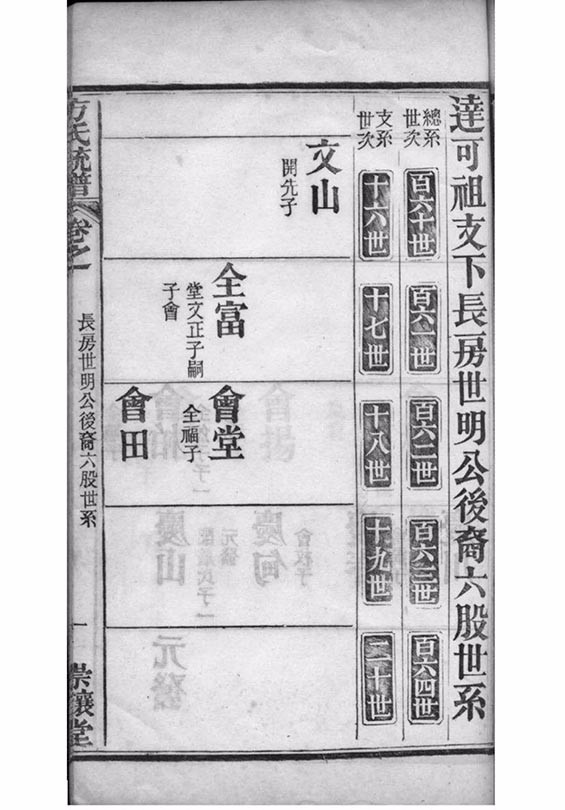 達可祖支下長房世明公後裔六股世系
總系
世次
百六十世
百六一世
百六二世
百六三世
百六四世
支系
世次
十六世
十七世
十八世
十九世
二十世
文山
開先子
全富
堂文正子嗣
子會
會堂
全福子
會田
方氏統譜
卷之一
長房世明公後裔六股世系
一
崇讓堂